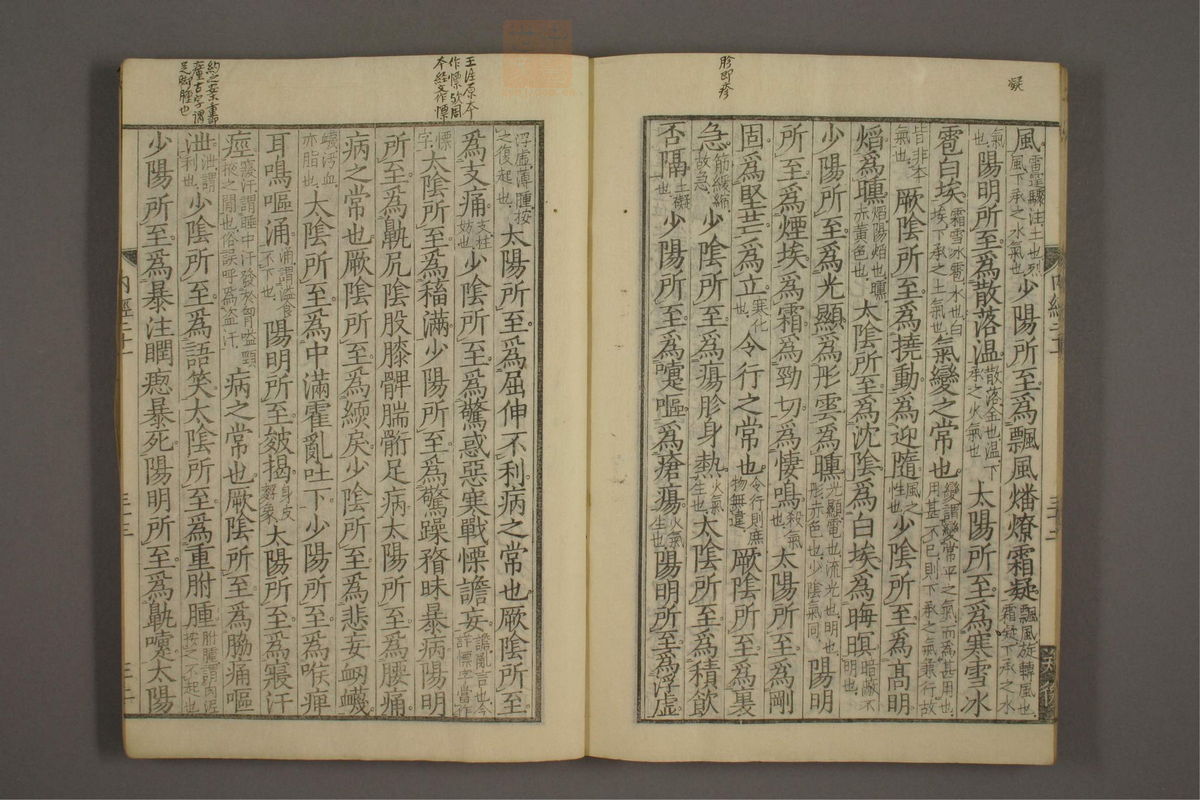 凝
胗即疹
風雷霆驟注土也烈風下承之水氣也少陽所至爲飄風燔燎霜凝飄風旋轉風也霜凝下承之水
氣也陽明所至爲散落溫散落金也溫下承之火氣也太陽所至爲寒雪冰
雹白埃霜雪冰雹水也白埃下承之土氣也氣變之常也變謂變常平之氣而爲甚用也用甚不已則下承之氣兼行故
皆非本氣也厥陰所至爲撓動爲迎隨風之性也少陰所至爲高明
焰爲曛焰陽焰也曛赤黃色也太陰所至爲沈陰爲白埃爲晦暝暗蔽不明也
少陽所至爲光顯爲彤雲爲曛光顯電也流光也明也彤赤色也少陰氣同陽明
所至爲煙埃爲霜爲勁切爲悽鳴殺氣也太陽所至爲剛
固爲堅芒爲立寒化也令行之常也令行則庶物無違厥陰所至爲裏
急筋緛縮故急少陰所至爲瘍胗身熱火氣生也太陰所至爲積飲
否隔土礙也少陽所至爲嚏嘔爲瘡瘍火氣生也陽明所至爲浮虛
浮虛薄腫按之復起也太陽所至爲屈伸不利病之常也厥陰所至
爲支痛支柱妨也少陰所至爲驚惑惡寒戰慄譫妄譫亂言也今詳慄字當作
慄字太陰所至爲稸滿少陽所至爲驚躁瞀昧暴病陽明
所至爲鼽尻陰股膝髀腨䯒足病太陽所至爲腰痛
病之常也厥陰所至爲緛戾少陰所至爲悲妄衄衊
衊污血亦脂也太陰所至爲中滿霍亂吐下少陽所至爲喉痺
耳鳴嘔涌涌謂溢食不下也陽明所至皴揭身皮麩象太陽所至爲寢汗
痙寢汗謂睡中汗發於胷嗌頸掖之間也俗誤呼爲盜汗病之常也厥陰所至爲脇痛嘔
泄泄謂利也少陰所至爲語笑太陰所至爲重胕腫胕腫謂肉泥按之不起也
少陽所至爲暴注瞤瘛暴死陽明所至爲鼽嚏太陽
內經二十一